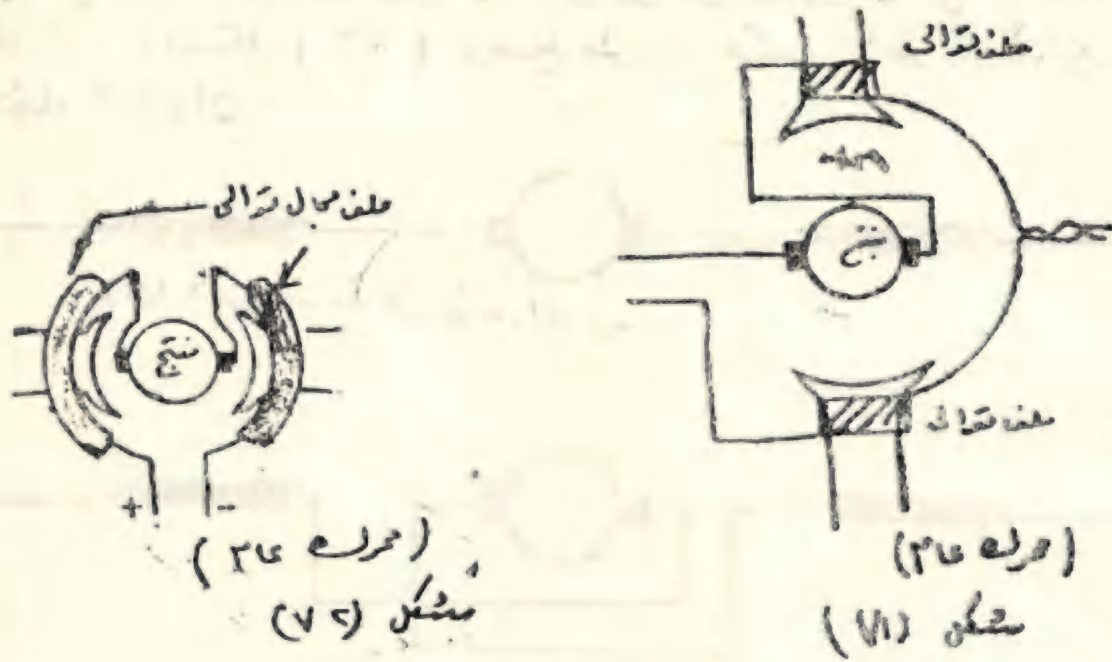 ملف توالى
منتج
ملف توالى
(محرك عام)
شكل (٧١)
ملف مجال توالى
منتج
+ -
(محرك عام)
شكل (٧٢)